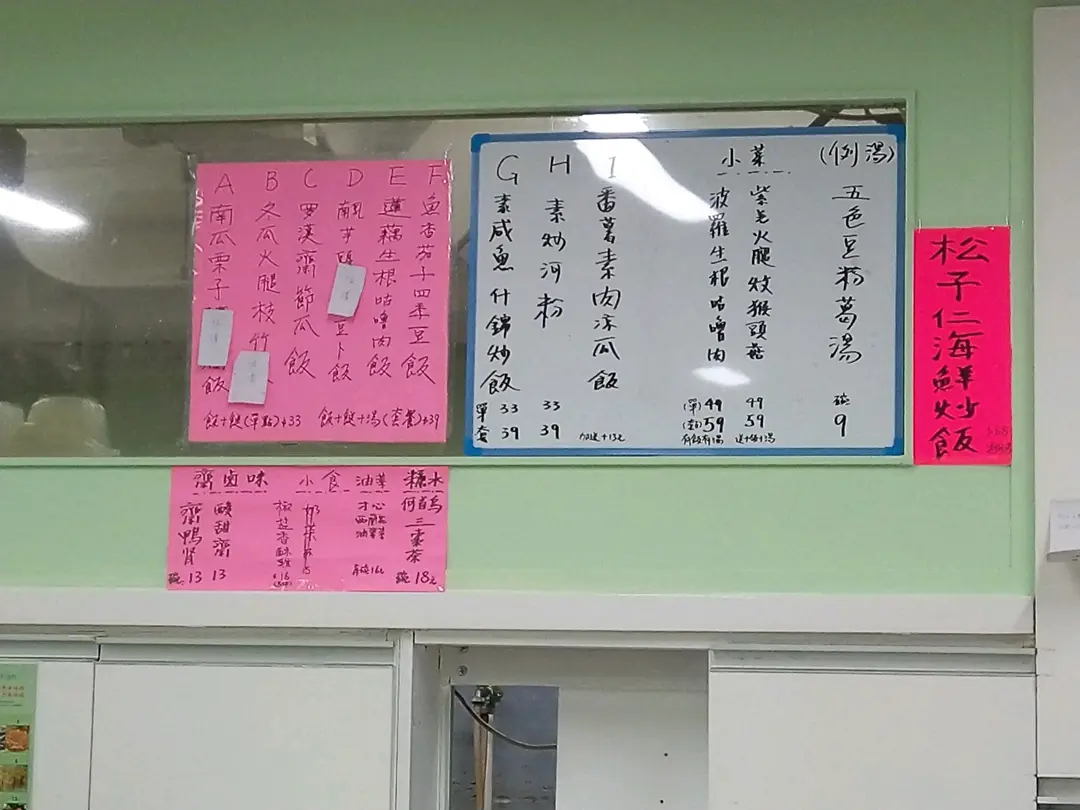 A 南瓜栗子飯
B 冬瓜火腿枝竹
C 罗漢齋節瓜飯
D 南乳芋頭豆卜飯
E 蓮藕生根咕嚕肉飯
F 魚香茄子四季豆飯
飯+餸(單點)$33 飯+餸+湯(套餐)$39
G 素咸魚什錦炒飯
單 33
套 39
H 素炒河粉
33
39
I 番薯素肉凉瓜飯
加送+13元
小菜
波羅生根咕嚕肉
(單)49
(套)59
有飯有湯
紫羌火腿炆猴頭菇
49
59
(例湯)
五色豆粉葛湯
碗
9
松子仁海鮮炒飯
齋卤味
齋鴨肾
碗 13
酸甜齋
13
小食
椒盐香酥
油菜
才心
西蘭花
糖水
何首烏三棗茶
碗 18元